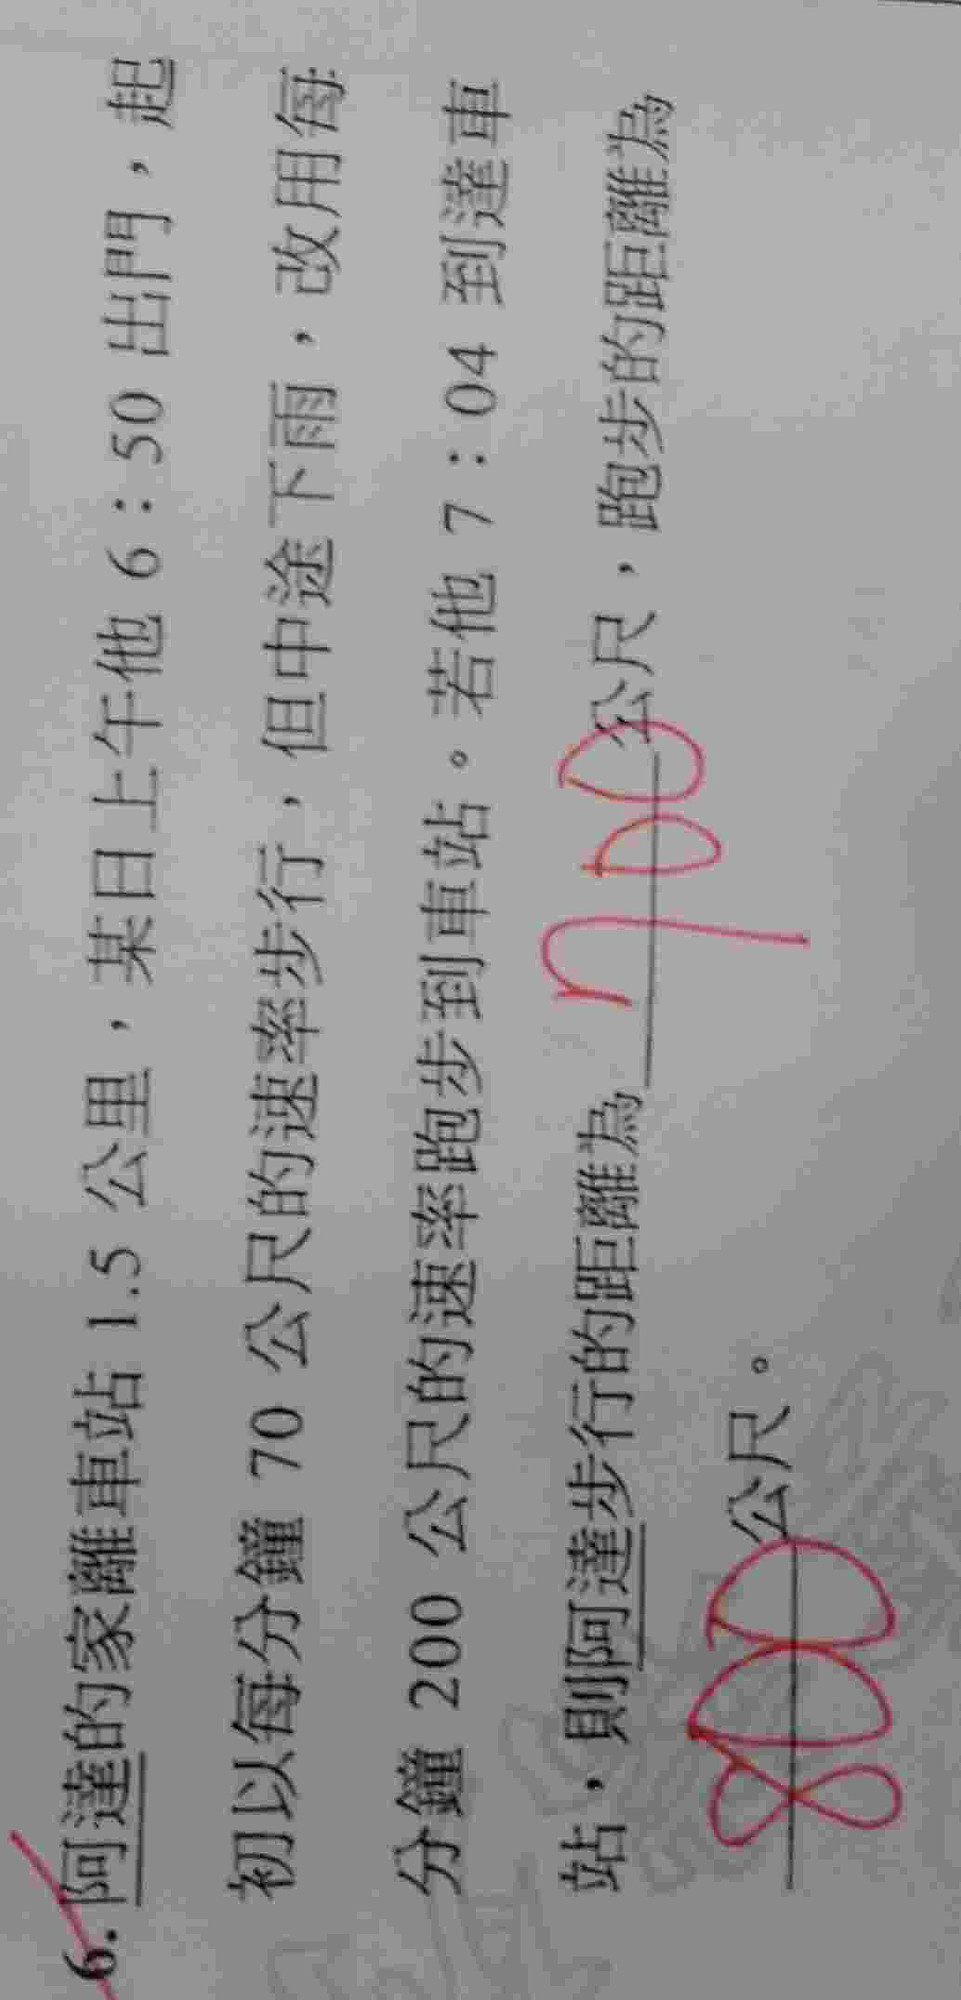 6. 阿達的家離車站 1.5 公里，某日上午他 6：50 出門，起
初以每分鐘 70 公尺的速率步行，但中途下雨，改用每
分鐘 200 公尺的速率跑步到車站。若他 7：04 到達車
站，則阿達步行的距離為700公尺，跑步的距離為
800公尺。